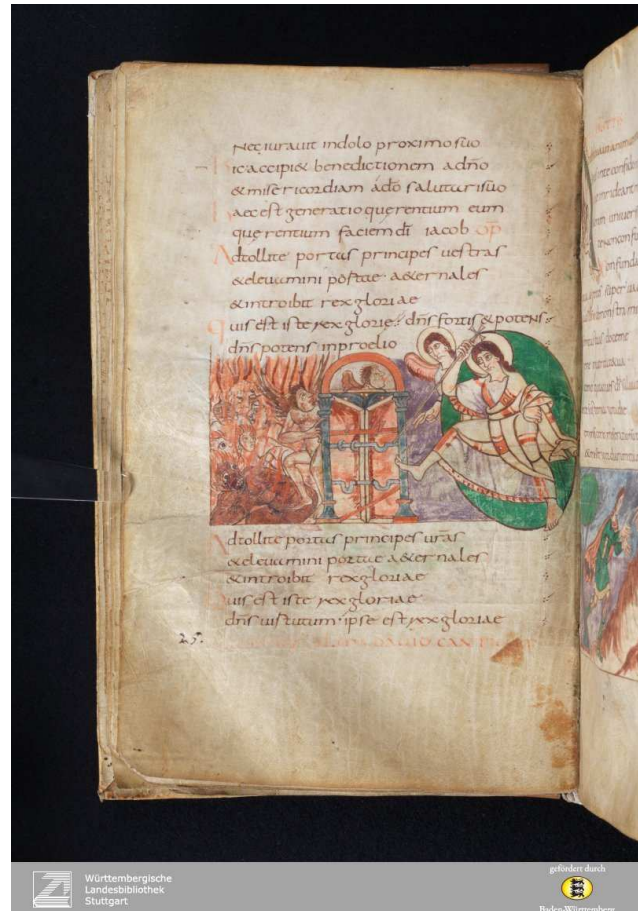 Nec iuravit indolo proximo suo
ic accipi& benedictionem adño
& misericordiam ado salutari suo
aec est generatio querentium eum
querentium faciem dī iacob
Adtollite portas principes vestras
& elevamini portae a&ernales
& introibit rex gloriae
quis est iste rex glorie? dñs fortis & potens
dñs potens inproelio
Adtollite portas principes vras
& elevamini portae a&ernales
& introibit rex gloriae
uis est iste rex gloriae
dñs uirtutum ipse est rex gloriae
25.
DAUID
Württembergische
Landesbibliothek
Stuttgart
gefördert durch
Baden-Württemberg